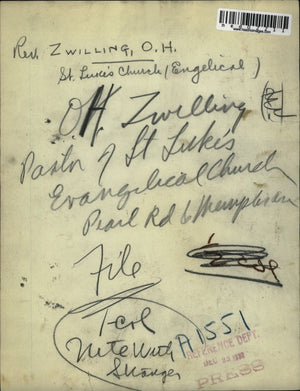 Rev. ZWILLING, O.H.
St. Luke's Church (Engelical)
O.H. Zwilling
Pastor of St Lukes
Evangelical Church
Pearl Rd &
File
1 col
R1551
REFERENCE DEPT.
PRESS